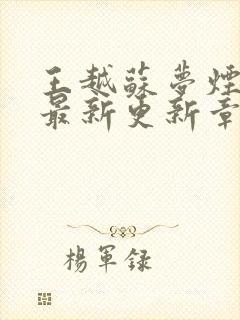 王越蘇夢煙
最新更新章
楊軍録